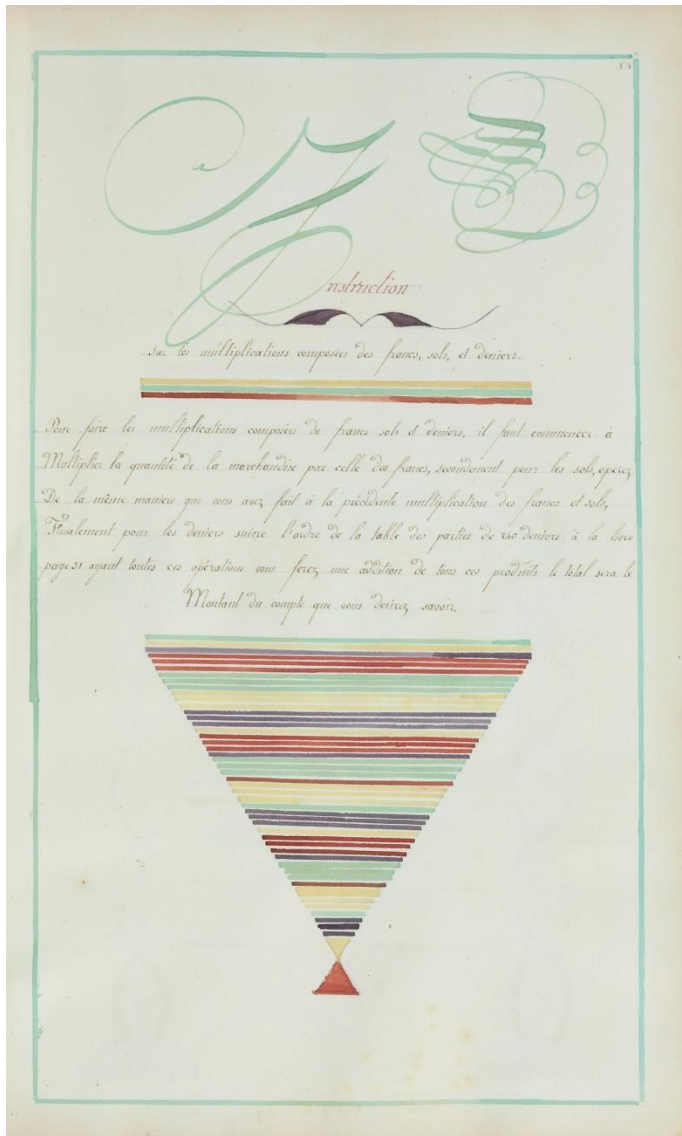 Instruction
sur les multiplications composées des francs, sols, et deniers.
Pour faire les multiplications composées de francs sols et deniers, il faut commencer à
Multiplier la quantité de la marchandise par celle des francs, secondement pour les sols, operez
De la même maniere que vous avez fait à la précédente multiplication des francs et sols,
Finalement pour les deniers suivre l'ordre de la table des parties de 240 deniers à la livre
page 31 ayant toutes ces opérations vous ferez une addition de tous ces produits le total sera le
Montant du compte que vous desirez savoir.